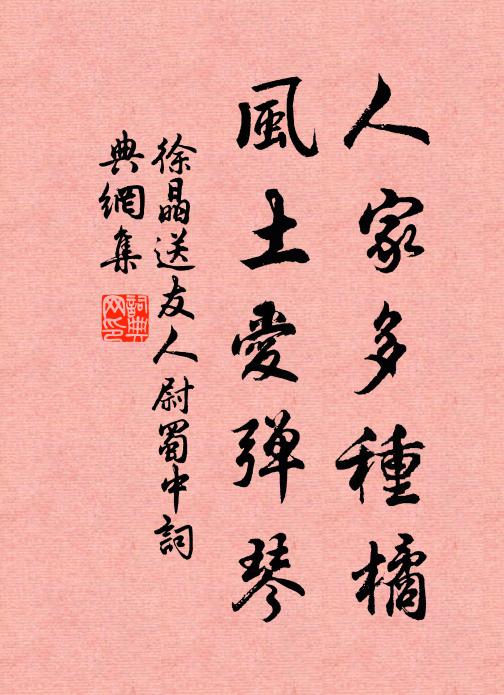 人家多種橘
風土愛弹琴
徐晶送友人尉蜀中詞
典網集
詞典
网印